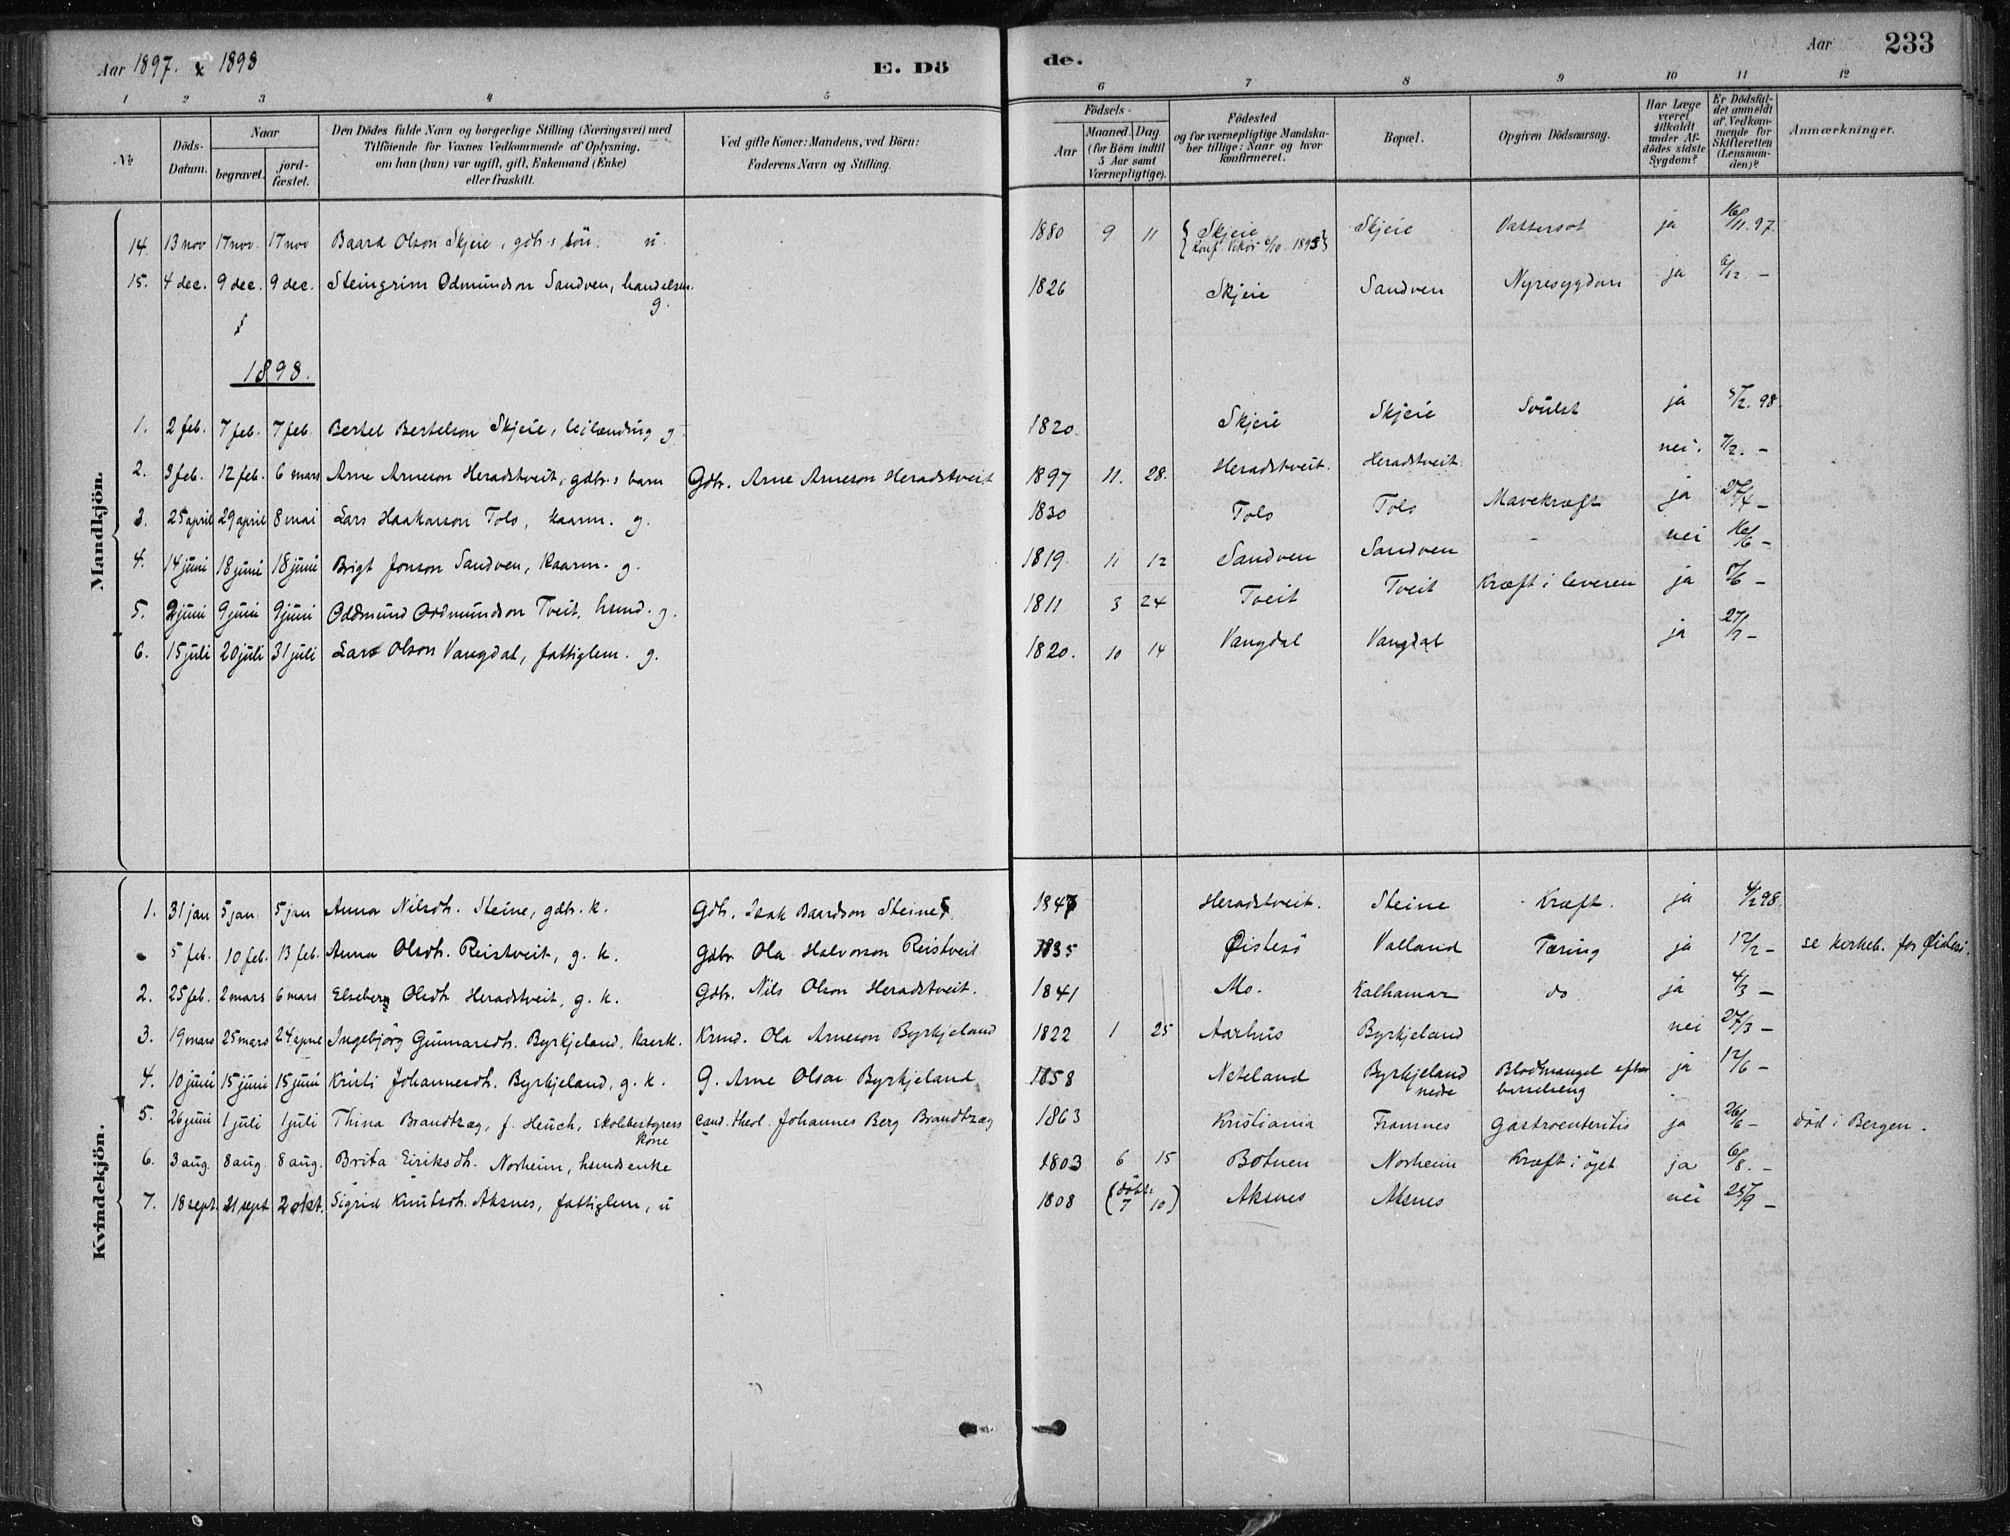 Aar 1897. & 1898
E. Dö
de.
Aar
233
1 2 3 4 5 6 7 8 9 10 11 12
No
Döds-Datum.
Naar
begravet.
jord-fæstet.
Den Dödes fulde Navn og borgerlige Stilling (Næringsvei) med
Tilföiende for Voxnes Vedkommende af Oplysning,
om han (hun) var ugift, gift, Enkemand (Enke)
eller fraskilt.
Ved gifte Koner: Mandens, ved Börn:
Faderens Navn og Stilling.
Födsels-
Aar
Maaned. Dag.
(for Börn indtil
5 Aar samt
Værnepligtige).
Födested
og for værnepligtige Mandska-
ber tillige: Naar og hvor
konfirmeret.
Bopæl.
Opgiven Dödsaarsag.
Har Læge
været
tilkaldt
under Af-
dödes sidste
Sygdom?
Er Dödsfal-
det anmeldt
af Vedkom-
mende for
Skifteretten
(Lensman-
den)?
Anmærkninger.
Mandkjön.
14. 13 nov 17 nov. 17 nov Baard Olson Skjeie, gdb.s sön. ü. 1880 9 11 Skjeie Skjeie Vattersot ja 16/11.97
Konf. Vikör 6/10. 1895
15. 4 dec. 9 dec. 9 dec. Steingrim Odmundson Sandven, handelsm. 1826 Skjeie Sandven Nyresygdom ja 6/12. —
g.
1898.
1. 2 feb. 7 feb. 7 feb. Bertel Bertelson Skjeie, leilænding g 1820. Skjeie Skjeie Svulst ja 5/2. 98.
2. 3 feb. 12 feb. 6 mars Arne Arneson Heradstveit, gdbr.s barn Gdbr. Arne Arneson Heradstveit 1897 11. 28. Heradstveit. Heradstveit. nei. 7/2. —
3. 25 april 29 april 8 mai Lars Haakonson Tolo, kaarm. g. 1830 Tolo Tolo Mavekræft ja 27/4 —
4. 14 juni 18 juni 18 juni Brigt Jonson Sandven, kaarm. g. 1819 11 12 Sandven Sandven - nei 16/6 —
5. 2 juni 9 juni 9 juni Oddmund Oddmundson Tveit, husm. g. 1811 3 24 Tveit Tveit Kræft i leveren ja 7/6 —
6. 15 juli 20 juli 31 juli Lars Olson Vangdal, fattiglem. g. 1820. 10 14 Vangdal Vangdal ja 27/7 —
Kvindekjön.
1. 31 jan 5 jan 5 jan Anna Nilsdh. Steine, gdb. k. Gdb. Isak Baardson Steine 1847 Heradstveit. Steine Kræft. ja 4/2 98.
5 feb. 10 feb. 13 feb. Anna Olsdh. Reistveit, g. k. Gdbr. Ola Halvorson Reistveit 1835 Øistesö Valland Tæring ja 12/2 — se kirkeb. for Øistesö.
2. 25 feb. 2 mars 6 mars Elseber Olsdh. Heradstveit, g. k. Gdbr. Nils Olson Heradstveit. 1841 Mo. Kalhamar do. ja 4/3 —
3. 19 mars 25 mars 24 april Ingebjörg Gunnarsdh. Byrkjeland, kaark. Krmd. Ola Arneson Byrkjeland 1822 1 25 Aarhus Byrkjeland nei 27/3 —
4. 10 juni 15 juni 15 juni Kristi Johannesdh. Byrkjeland, g. k. G. Arne Olson Byrkjeland 1858 Neteland Byrkjeland Blodmangel efter ja 12/6 —
nedre barselseng
5. 26 juni 1 juli 1 juli Thina Brandtzæg, f. Heuch, skolebestyrers cand. theol. Johannes Berg Brandtzæg 1863 Kristiania Framnes Gastroenteritis ja 26/6 — död i Bergen.
kone
6. 3 aug. 8 aug. 8 aug. Brita Eiriksdh. Norheim, husmdsenke 1803 6 15 Botnen Norheim Kræft i öjet ja 6/8. —
7. 18 sept. 21 sept 2 okt. Sigrid Knutsdh. Aksnes, fattiglem, ü 1808 (döbt: 7 10) Aksnes Aksnes nei 25/9 —